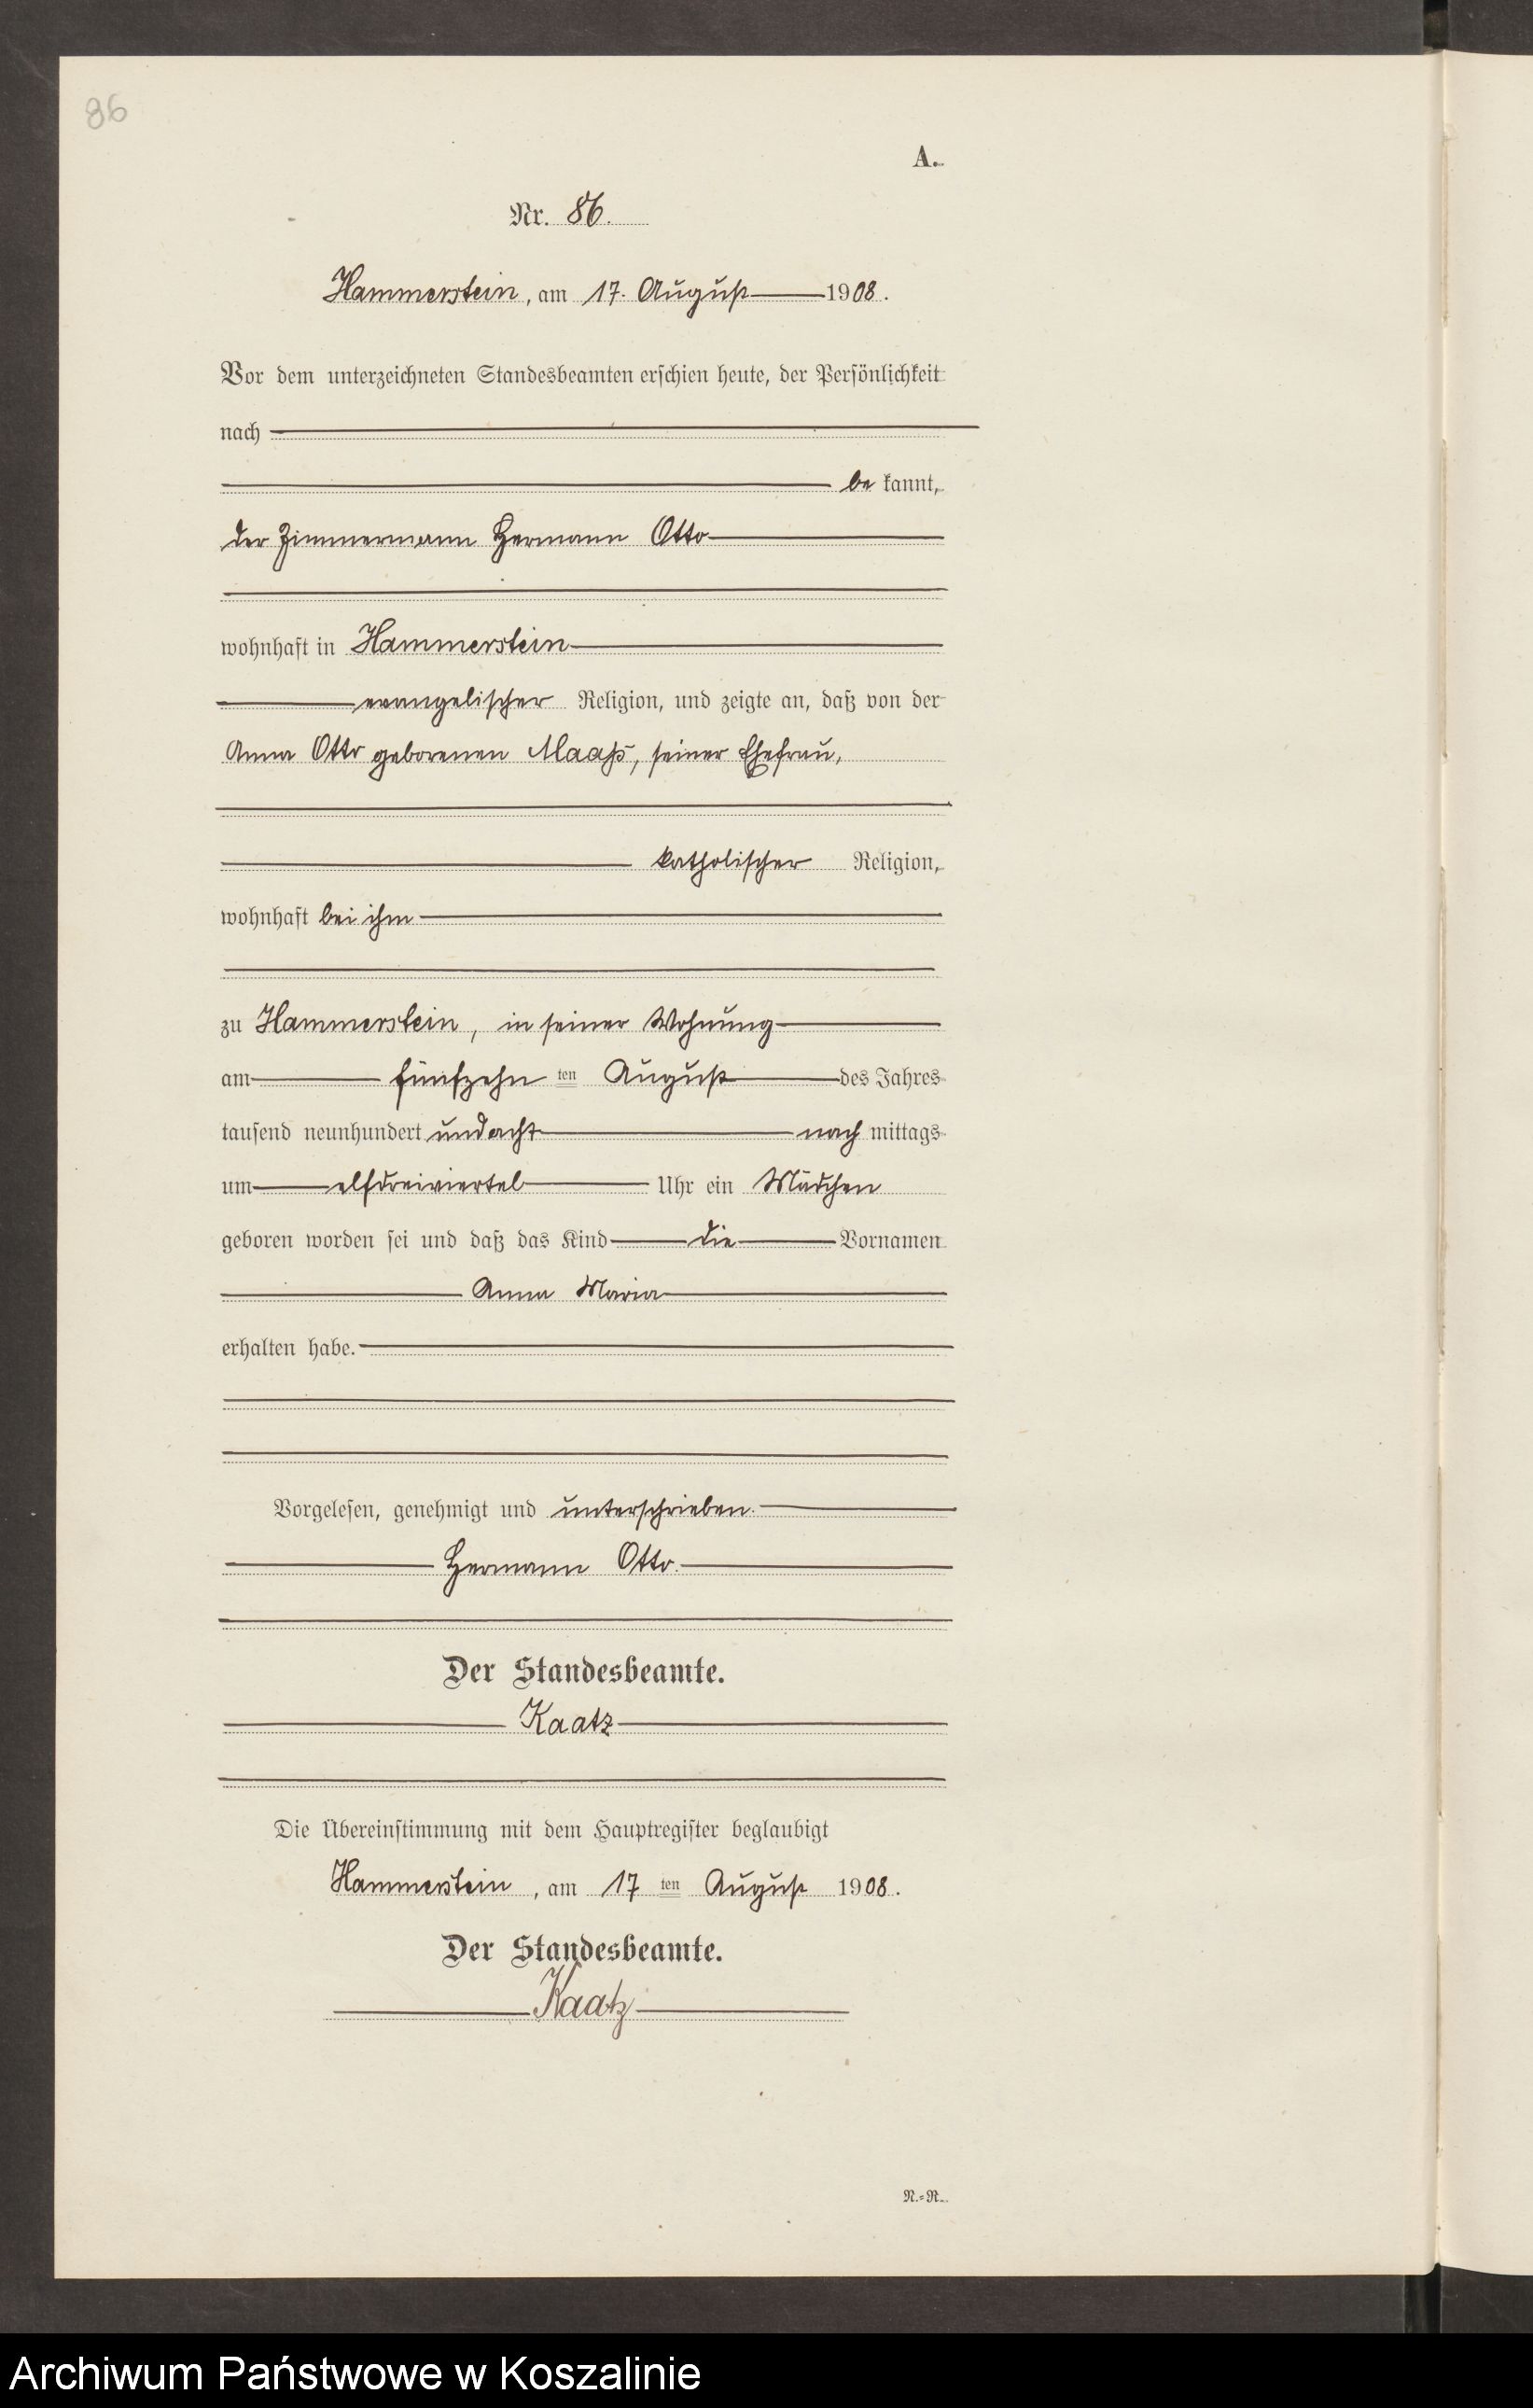 86
A.
Nr. 86.
Hammerstein, am 17. August 1908.
Vor dem unterzeichneten Standesbeamten erschien heute, der Persönlichkeit
nach
be kannt,
der Zimmermann Hermann Otto
wohnhaft in Hammerstein
evangelischer Religion, und zeigte an, daß von der
Anna Otto geborenen Maaß, seiner Ehefrau,
katholischer Religion,
wohnhaft bei ihm
zu Hammerstein, in seiner Wohnung
am fünfzehn ten August des Jahres
tausend neunhundert undacht nach mittags
um elfdreiviertel Uhr ein Mädchen
geboren worden sei und daß das Kind die Vornamen
Anna Maria
erhalten habe.
Vorgelesen, genehmigt und unterschrieben.
Hermann Otto.
Der Standesbeamte.
Kaatz
Die Übereinstimmung mit dem Hauptregister beglaubigt
Hammerstein, am 17 ten August 1908.
Der Standesbeamte.
Kaatz
N.=R.
Archiwum Państwowe w Koszalinie